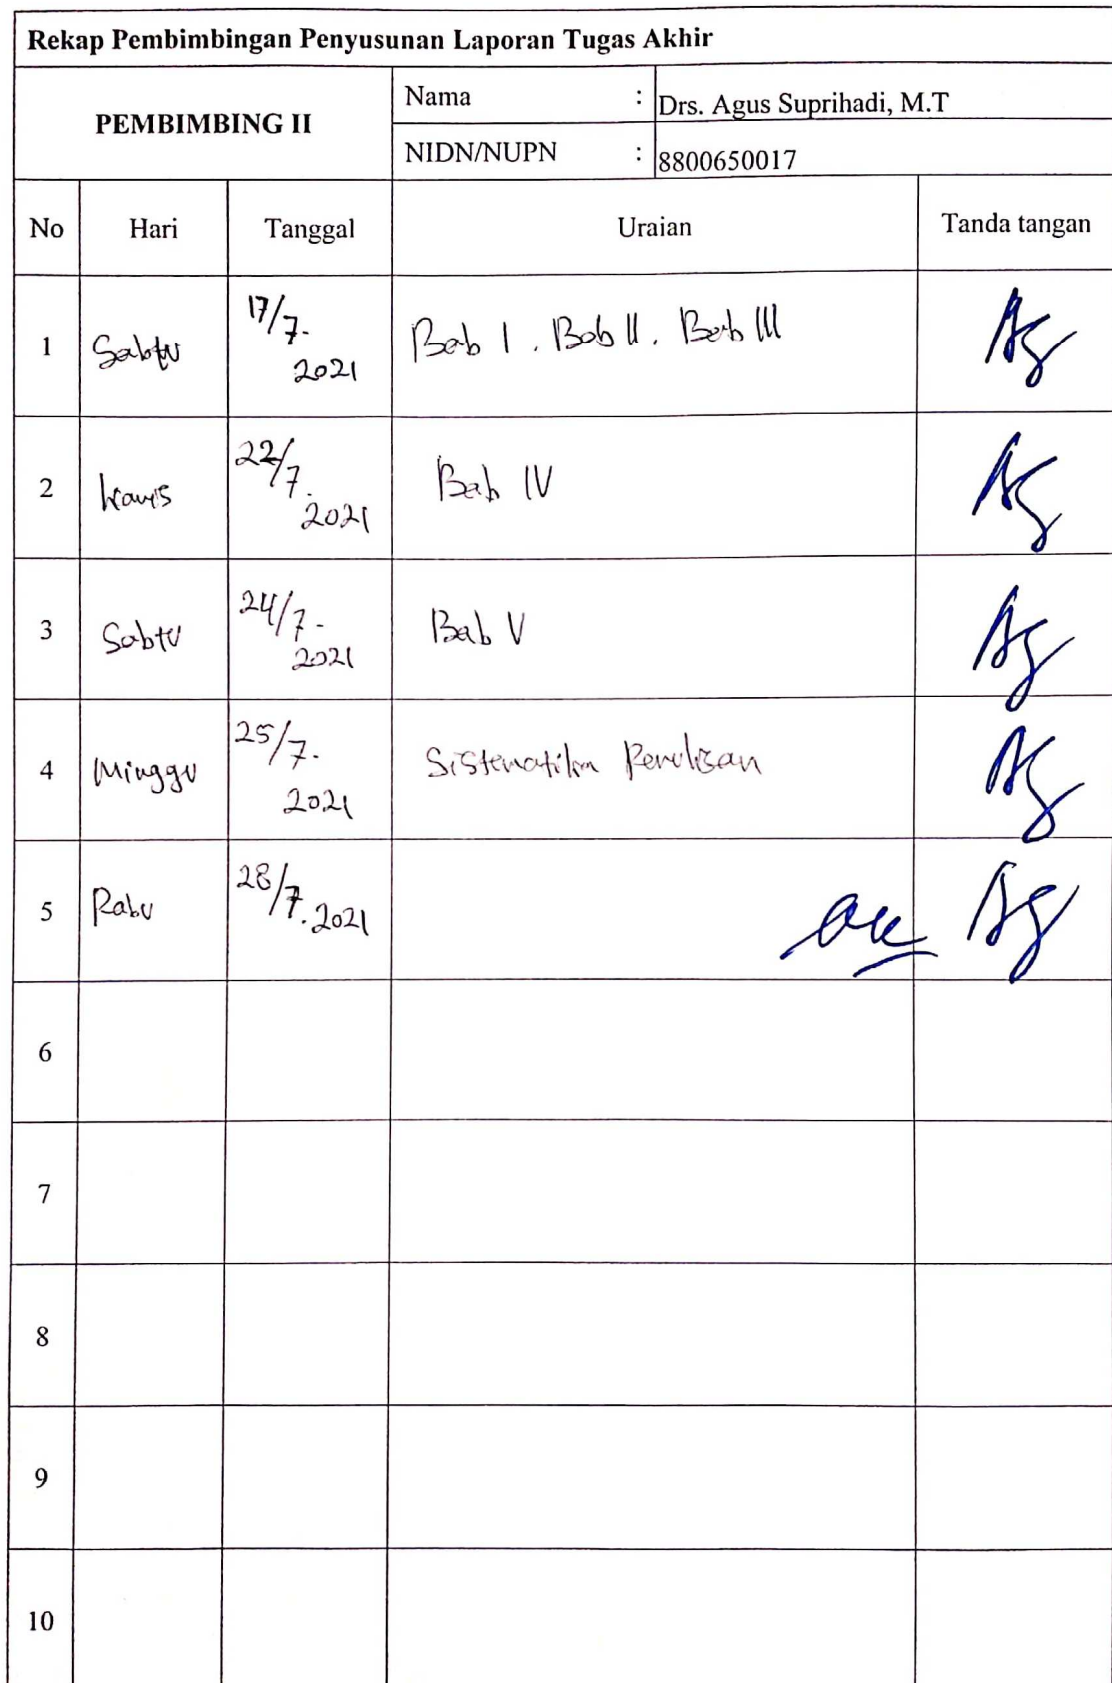 Rekap Pembimbingan Penyusunan Laporan Tugas Akhir
PEMBIMBING II
Nama : Drs. Agus Suprihadi, M.T
NIDN/NUPN : 8800650017
No Hari Tanggal Uraian Tanda tangan
1 Sabtu 17/7. 2021 Bab I . Bab II . Bab III
2 Kamis 22/7. 2021 Bab IV
3 Sabtu 24/7. 2021 Bab V
4 Minggu 25/7. 2021 Sistematika Penulisan
5 Rabu 28/7. 2021
6
7
8
9
10